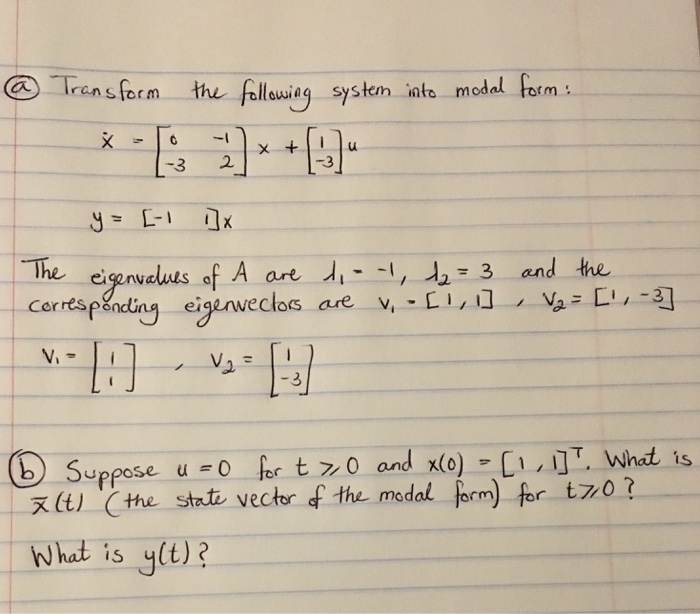 ⓐ Transform the following system into modal form:
ẋ = [0 -1; -3 2] x + [1; -3] u
y = [-1 1]x
The eigenvalues of A are λ₁ = -1, λ₂ = 3 and the
corresponding eigenvectors are v₁ = [1, 1] , v₂ = [1, -3]
V₁ = [1; 1] , V₂ = [1; -3]
ⓑ Suppose u = 0 for t ⩾ 0 and x(0) = [1, 1]ᵀ. What is
x̄(t) (the state vector of the modal form) for t⩾0?
What is y(t)?